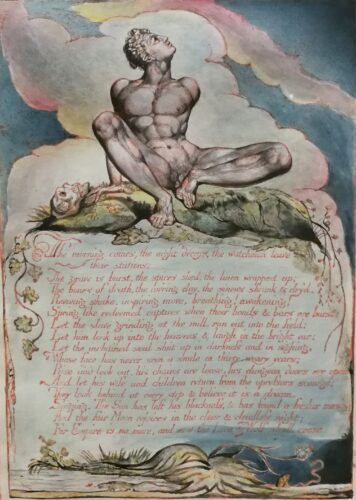 The morning comes, the night decays, the watchmen leave
their stations;
The grave is burst, the spices shed, the linen wrapped up;
The bones of death, the cov'ring clay, the sinews shrunk & dry'd,
Reviving shake, inspiring move, breathing! awakening!
Spring like redeemed captives when their bonds & bars are burst;
Let the slave grinding at the mill, run out into the field:
Let him look up into the heavens & laugh in the bright air;
Let the inchained soul shut up in darkness and in sighing,
Whose face has never seen a smile in thirty weary years;
Rise and look out, his chains are loose, his dungeon doors are open.
And let his wife and children return from the opressors scourge;
They look behind at every step & believe it is a dream.
Singing. The Sun has left his blackness, & has found a fresher morning
And the fair Moon rejoices in the clear & cloudless night;
For Empire is no more, and now the Lion & Wolf shall cease.